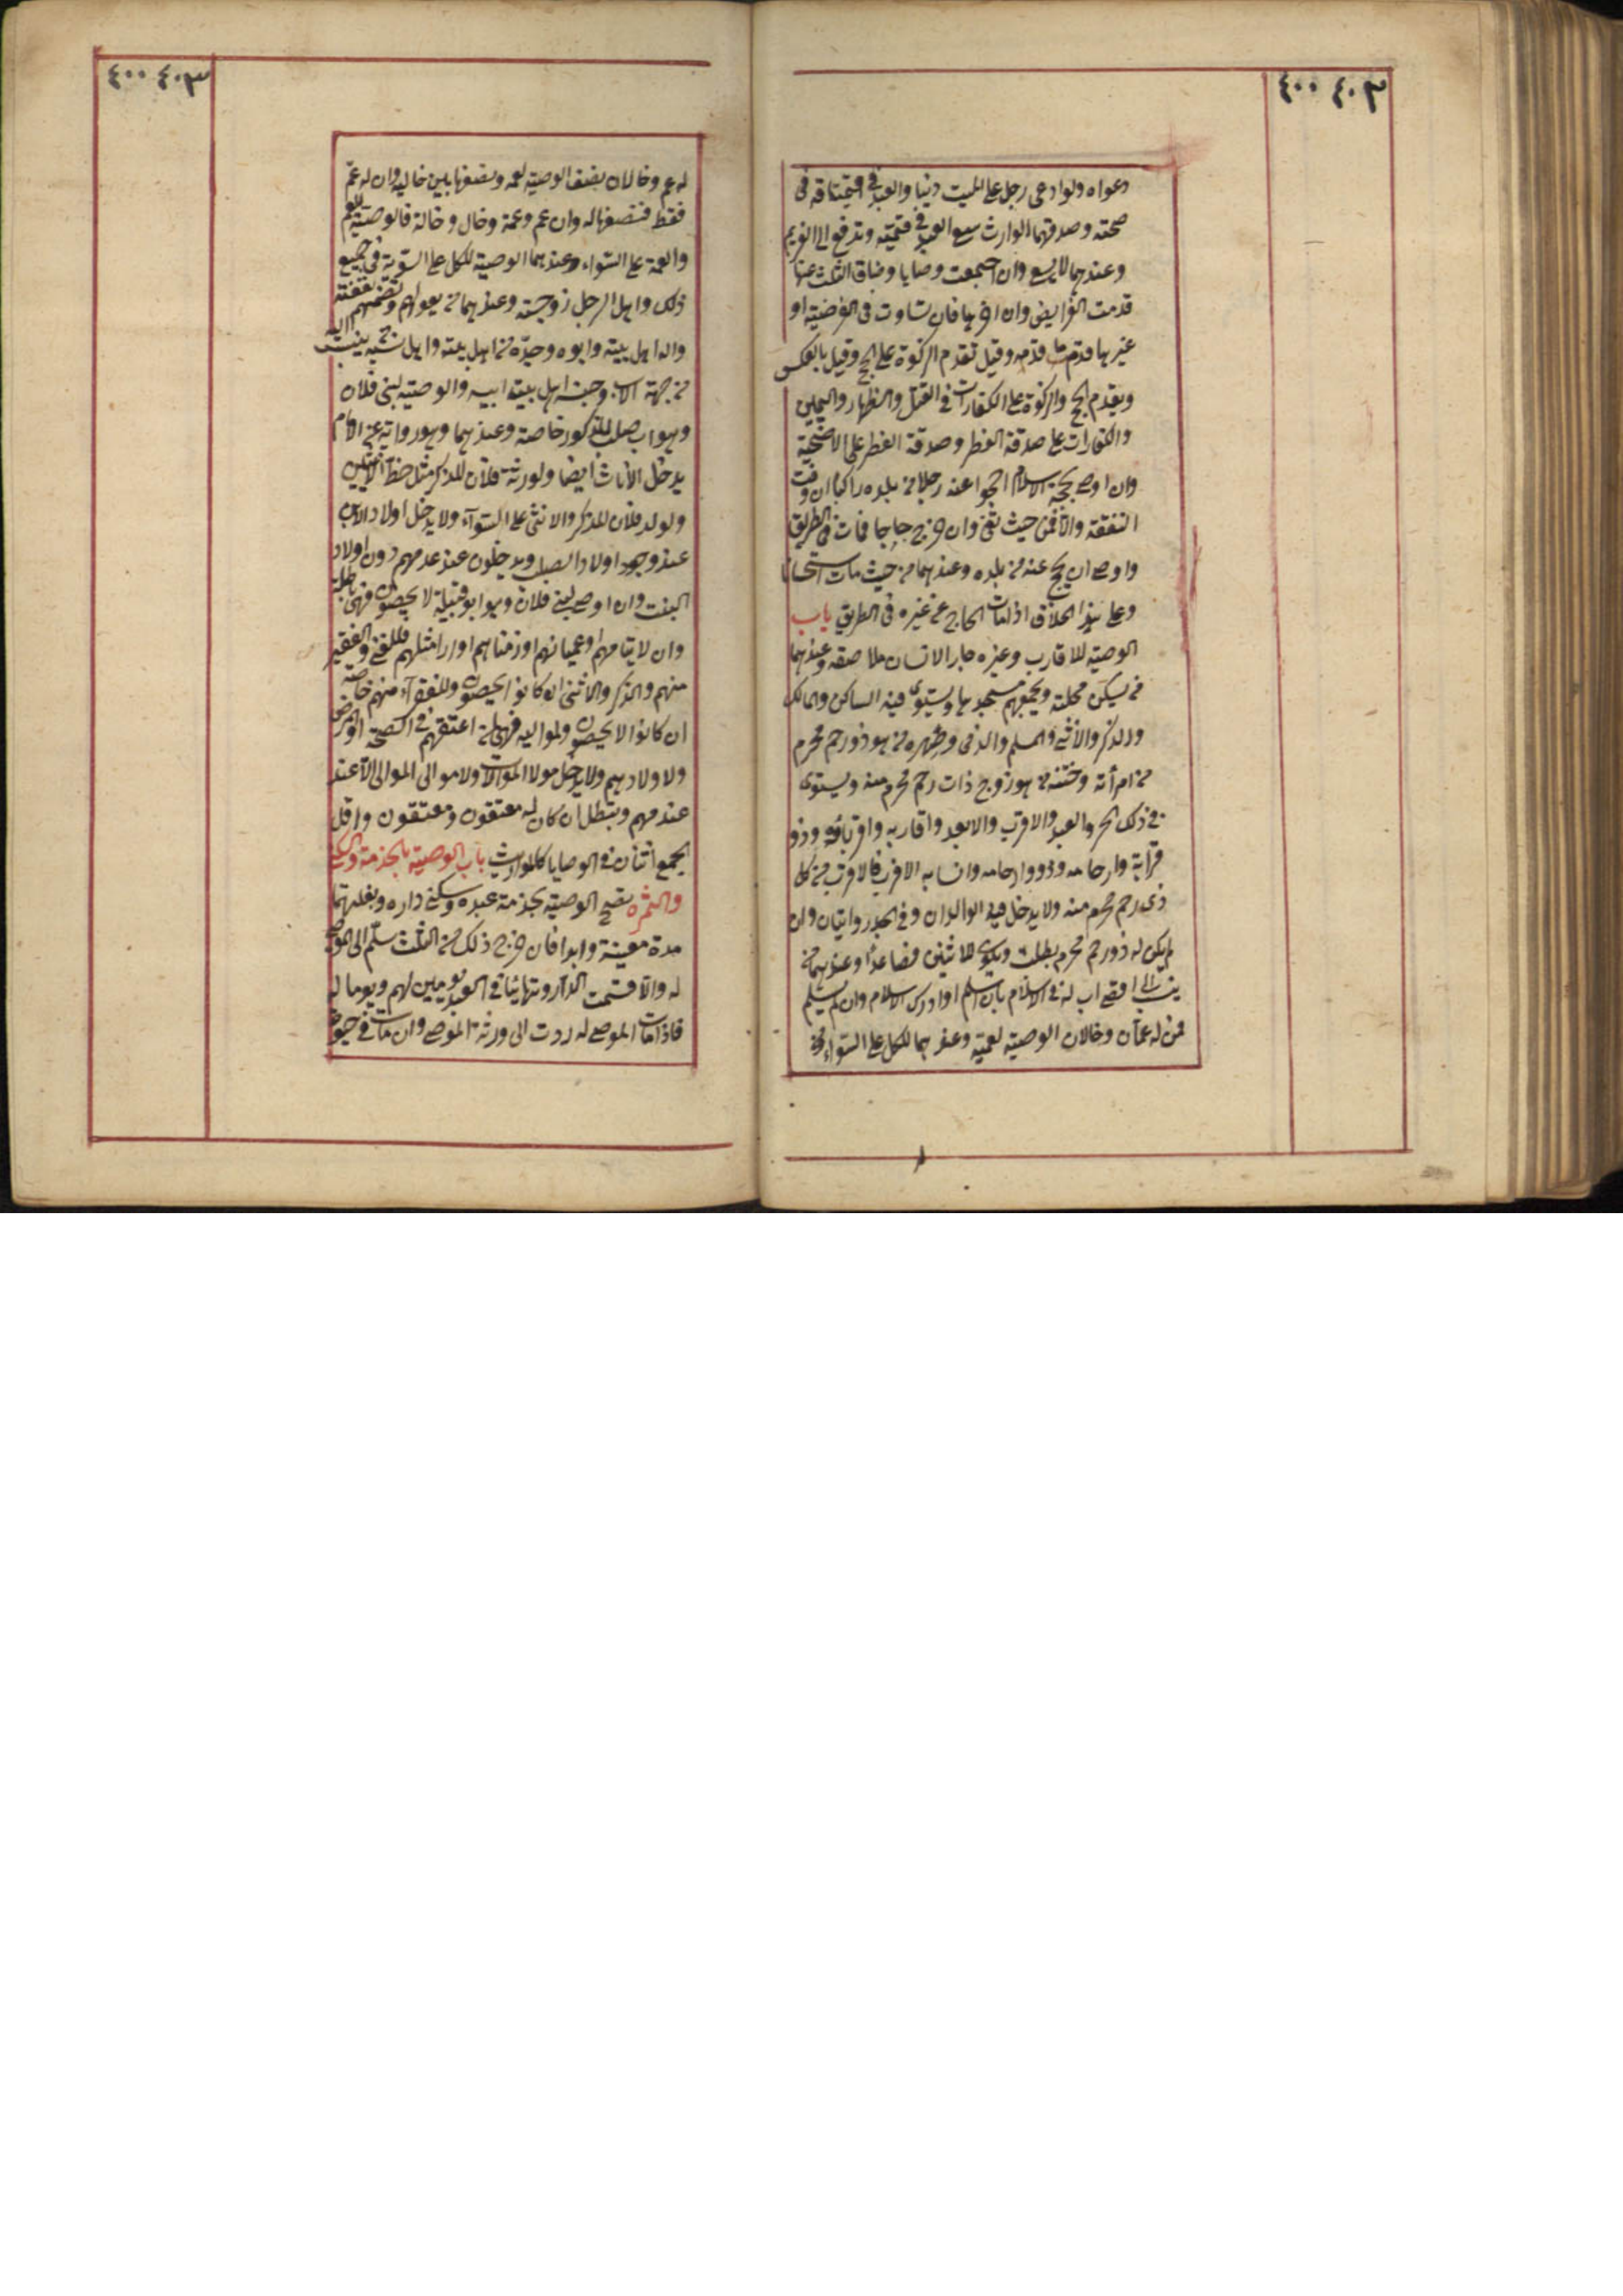 ٤٠٣ ٤٠٠
دعواه ولو ادعى رجل على الميت دينا والعبد في عتاقه في
صحته وصدقهما الوارث سعى العبد في قيمته وتدفع الى الغريم
وعندهما لا يسعى وان اجتمعت وصايا وضاق الثلث عنها
قدمت الفرايض وان اخرها فان تساوت في الفرضية او
غيرها قدم ما قدمه وقيل تقدم الزكوة على الحج وقيل بالعكس
ويقدم الحج والزكوة على الكفارات في القتل والظهار واليمين
والكفارات على صدقة الفطر وصدقة الفطر على الاضحية
وان اوصى بحجة الاسلام احجوا عنه رجلا من بلده راكبا ان وفت
النفقة والا فمن حيث تفى وان خرج حاجا فمات في الطريق
واوصى ان يحج عنه من بلده وعندهما من حيث مات استحسانا
وعلى هذا الخلاف اذا مات الحاج عن غيره في الطريق باب
الوصية للاقارب وغيره جار الانسان ملاصقه وعندهما
من يسكن محلته ويجمعهم مسجدها ويستوى فيه الساكن والمالك
والذكر والانثى والمسلم والذمى وصهره من هو ذو رحم محرم
من امرأته وختنه من هو زوج ذات رحم محرم منه ويستوى
في ذلك الحر والعبد والاقرب والابعد واقاربه واقرباؤه وذو
قرابة وارحامه وذووا ارحامه وانسابه الاقرب فالاقرب من كل
ذى رحم محرم منه ولا يدخل فيه الوالدان وفي الجد روايتان وان
لم يكن له ذو رحم محرم بطلت ويكون للاثنين فصاعدا وعندهما من
ينسب الى اقصى اب له في الاسلام بان اسلم او ادرك الاسلام وان لم يسلم
فمن له عمان وخالان الوصية لعميه وعندهما للكل على السواء ومن
٤٠٣ ٤٠٠
له عم وخالان نصف الوصية لعمه ونصفها بين خاليه وان له عم
فقط فنصفها له وان عم وعمة وخال وخالة فالوصية للعم
والعمة على السواء وعندهما الوصية للكل على السوية في جميع
ذلك واهل الرجل زوجته وعندهما من يعولهم وتضمهم نفقته
واله اهل بيته وابوه وجده من اهل بيته واهل نسبه من ينسب اليه
من جهة الاب وجنسه اهل بيت ابيه والوصية لبنى فلان
وهو اب صلب للذكور خاصة وعندهما وهو رواية عن الامام
يدخل الاناث ايضا ولورثة فلان للذكر مثل حظ الانثيين
ولولد فلان للذكر والانثى على السوآء ولا يدخل اولاد الابن
عند وجود اولاد الصلب ويدخلون عند عدمهم دون اولاد
البنت وان اوصى لبنى فلان وهو ابو قبيلة لا يحصون فهى باطلة
وان لايتامهم او عميانهم او زمناهم او اراملهم فللغنى والفقير
منهم والذكر والانثى ان كانوا يحصون وللفقرآء منهم خاصة
ان كانوا لا يحصون ولمواليه فهى لمن اعتقهم في الصحة او المرض
ولاولادهم ولا يدخل مولا الموالات ولا موالى الموالى الا عند
عدمهم وتبطل ان كان له معتقون ومعتقون واقل
الجمع اثنان في الوصايا كالمواريث باب الوصية بالخدمة والسكنى
والثمرة تصح الوصية بخدمة عبده وسكنى داره وبغلتهما
مدة معينة وابدا فان خرج ذلك من الثلث سلم الى الموصى
له والا قسمت الدار وتهائيا في العبد يومين لهم ويوما له
فاذا مات الموصى له ردت الى ورثة الموصى وان مات في حيوة